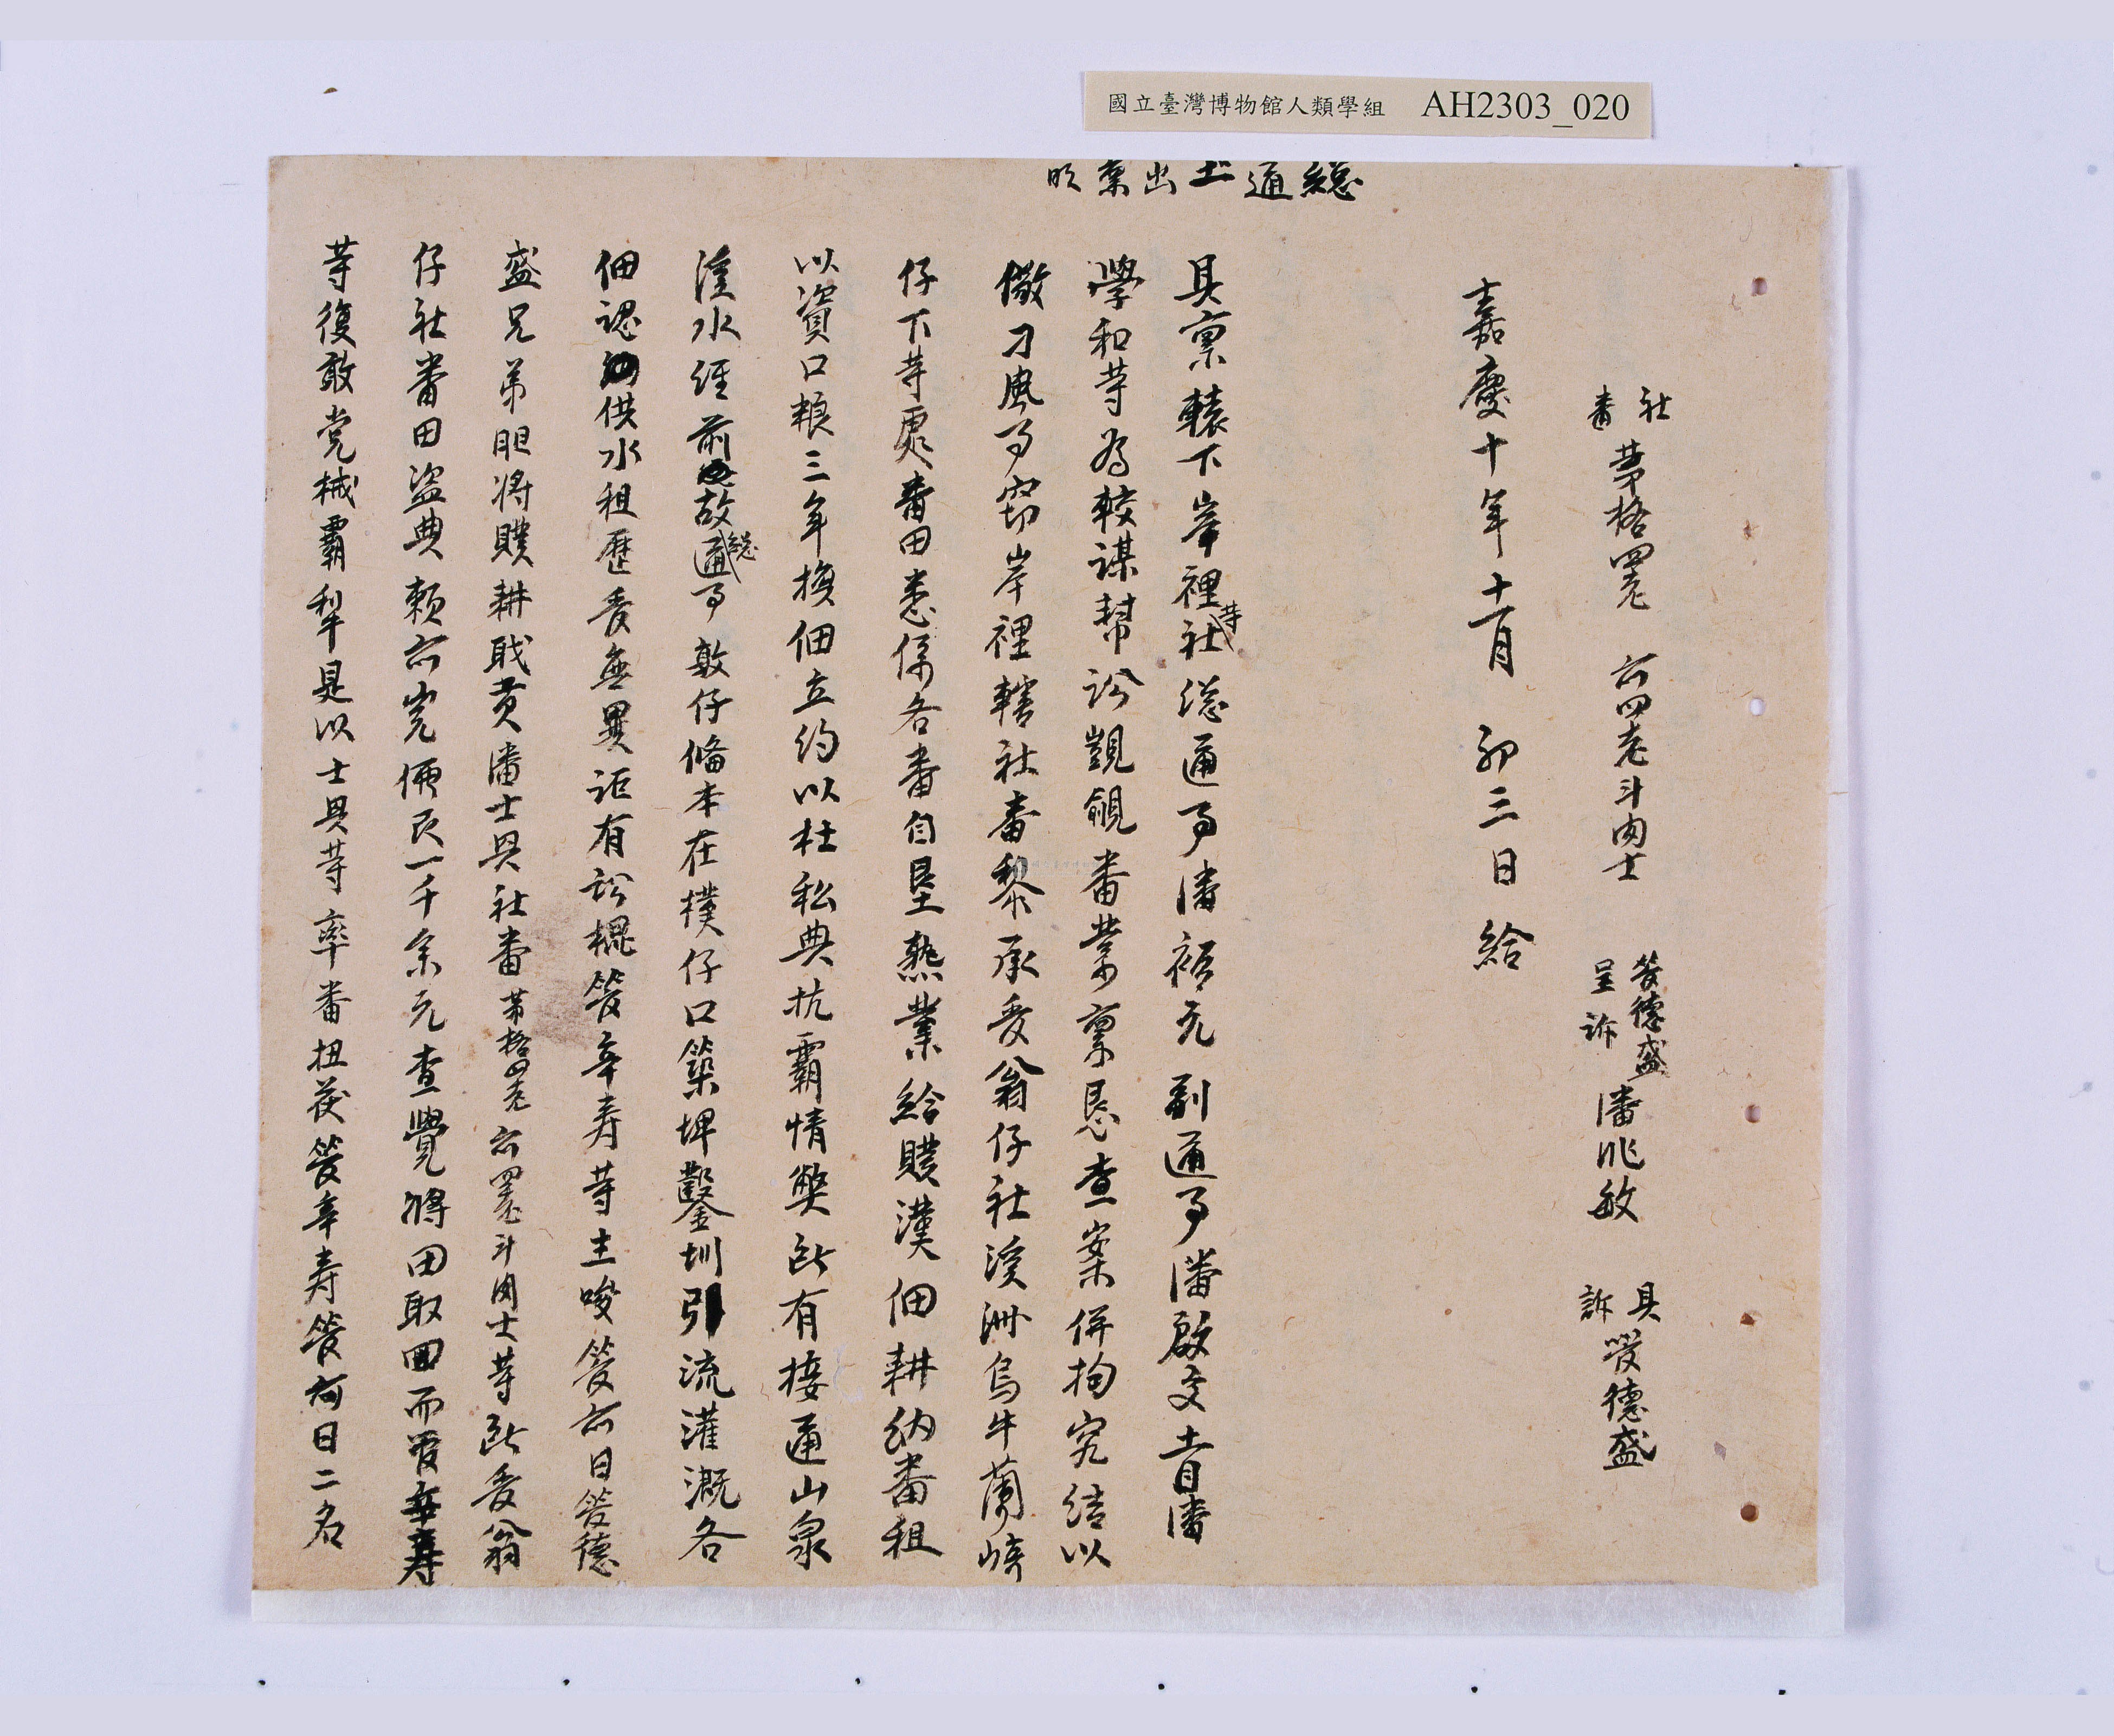 國立臺灣博物館人類學組 AH2303_020
總通土出稟明
社番 茅格四老 六四老斗肉士 管德盛呈訴 潘兆敏 具訴 管德盛
嘉慶十年十一月初三日給
具稟轅下岸裡社等總通事潘裕元副通事潘啟文土目潘
學和等為較謀幫訟覬覦番業稟恳查案併拘究結以
儆刁風事窃岸裡轄社番黎承受翁仔社溪洲烏牛蘭崎
仔下等處番田悉係各番自墾熟業給贌漢佃耕納番租
以資口粮三年換佃立約以杜私典抗霸情弊此有接通山泉
溪水經前故總通事敦仔偹本在樸仔口築埤鑿圳引流灌溉各
佃認供水租歷受無異詎有訟棍管辛寿等主唆管六日管德
盛兄弟胆将贌耕戝黃潘士興社番茅格四老六四老斗肉士等此受翁
仔社番田盜典賴六宽佰艮一千余元查覺將田取回而管辛寿
等復敢党械霸犁是以士興等率番扭获管辛寿管阿日二名